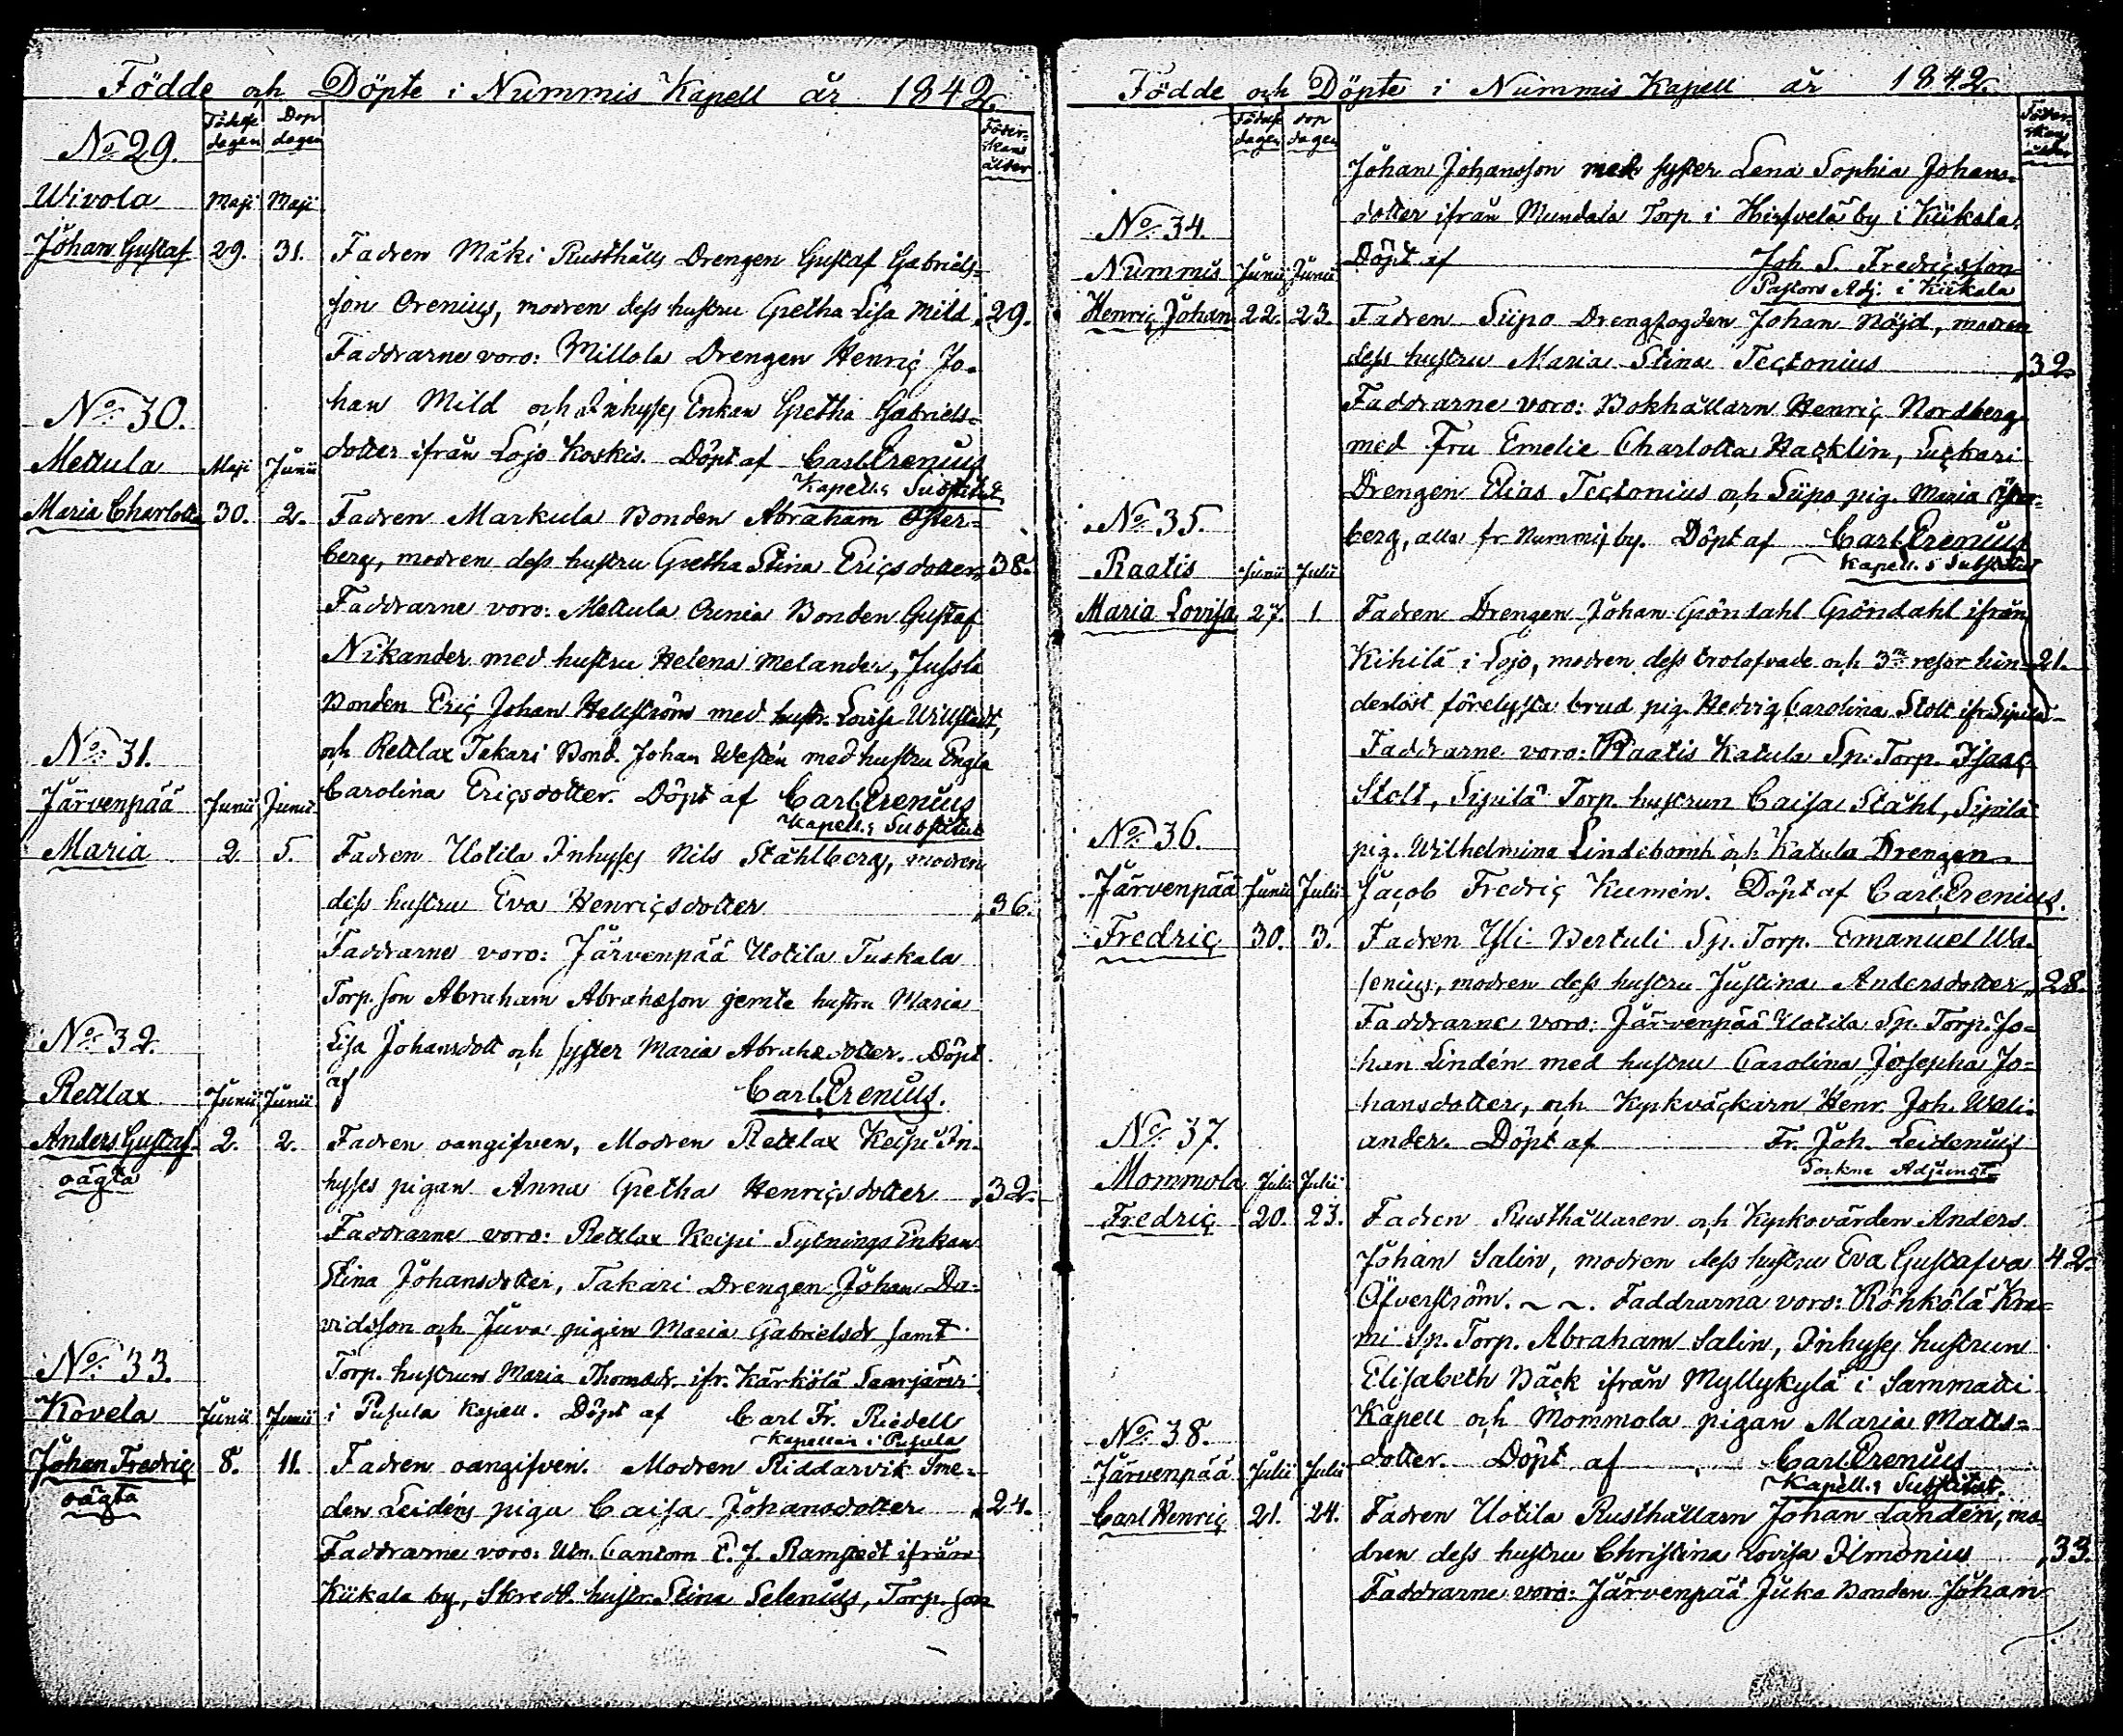 Födde och Döpte i Nummis Kapell år 1842.
Födelse dagen
Dop dagen
Föder-
skans
ålder
No 29.
Wivola Maji Maji
Johan Gustaf 29. 31. Fadren Mäki Rusthålls Drengen Gustaf Gabriels-
son Orenius, modren dess hustru Gretha Lisa Mild 29.
Faddrarne voro: Millola Drengen Henric Jo-
han Mild och Inhyses Enkan Gretha Gabriels-
dotter ifrån Lojo Koskis. Döpt af Carl Erenius
Kapell.s Substitut
No 30.
Mettula Maji Junii
Maria Charlotta 30. 2. Fadren Markula Bonden Abraham Öster-
berg, modren dess hustru Gretha Stina Ericsdotter 38.
Faddrarne voro: Mettula Ounia Bonden Gustaf
Nikander med hustru Helena Melander, Jussla
Bonden Eric Johan Hellström med hustr. Lovisa Willstedt,
och Retlax Takari Bond. Johan Westén med hustru Engla
Carolina Ericsdotter. Döpt af Carl Erenius
Kapell.s Substitut
No 31.
Järvenpää Junii Junii
Maria 2. 5. Fadren Uotila Inhyses Nils Ståhlberg, modren
dess hustru Eva Henricsdotter 36.
Faddrarne voro: Järvenpää Uotila Tuskala
Torp. son Abraham Abrahsson jemte hustru Maria
Lisa Johansdott och syster Maria Abrahsdotter. Döpt
af Carl Erenius.
No 32.
Retlax Junii Junii
Anders Gustaf 2. 2. Fadren oangifven, Modren Retlax Keipi In-
oägta
hyses pigan Anna Gretha Henricsdotter 32.
Faddrarne voro: Retlax Keipi Sytnings Enkan
Stina Johansdotter, Takari Drengen Johan Da-
vidsson och Juva pigan Maria Gabrielsdr samt
Torp. hustrun Maria Thomasdr ifr. Kärkölä Saarijärvi
i Pusula Kapell. Döpt af Carl Fr. Riedell
Kapellan i Pusula
No 33.
Kovela Junii Junii
Johan Fredric 8. 11. Fadren oangifven. Modren Riddarvik Sme-
oägta
den Leidéns piga Caisa Johansdotter 24.
Faddrarne voro: Utn. Cantorn C. J. Ramstedt ifrån
Kiikala by, Skredd. hustr. Stina Selenius, Torp. son
Födde och Döpte i Nummis Kapell år 1842.
Födelse dagen
dop dagen
Föder-
skans
ålder
Johan Johansson med syster Lena Sophia Johans-
dotter ifrån Mundala Torp i Hirsvelä by i Kiikala.
Döpt af Joh. S. Fredricsson
Pastors Adj. i Kiikala
No 34.
Nummis Junii Junii
Henric Johan 22. 23. Fadren Siipo Drengfogden Johan Nöjd, modren
dess hustru Maria Stina Tectonius 32.
Faddrarne voro: Bokhållarn Henric Nordberg
med Fru Emelie Charlotta Hacklin, Luckari
Drengen Elias Tectonius och Siipo pig. Maria Öster-
berg, alla fr. Nummis by. Döpt af Carl Erenius
Kapell.s Substitut
No 35.
Raatis Junii Julii
Maria Lovisa 27. 1. Fadren Drengen Johan Gröndahl Gröndahl ifrån
Kihilä i Lojo, modren dess trolofvade och 3ne resor hin- 21.
derlöst förelysta brud pig. Hedvig Carolina Stolt ifr. Sipilä
Faddrarne voro: Raatis Katula Sp. Torp. Isaac
Stolt, Sipilä Torp. hustrun Caisa Ståhl, Sipilä
pig. Wilhelmina Lindebomb och Katula Drengen
Jacob Fredric Kumén. Döpt af Carl Erenius.
No 36.
Järvenpää Junii Julii
Fredric 30. 3. Fadren Yli Bertuli Sp. Torp. Emanuel Wa-
senius, modren dess hustru Justina Andersdotter 28.
Faddrarne voro: Järvenpää Uotila Sp. Torp. Jo-
han Lindén med hustru Carolina Josepha Jo-
hansdotter, och Kyrkväckarn Henr. Joh. Weli-
ander. Döpt af Fr. Joh. Leidenius
Sockne Adjunct.
No 37.
Mommola Julii Julii
Fredric 20. 23. Fadren Rusthållaren och Kyrkovärden Anders
Johan Salin, modren dess hustru Eva Gustafva 42.
Öfverström. ~ ~. Faddrarna voro: Röhkölä Kra-
mi Sp. Torp. Abraham Salin, Inhyses hustrun
Elisabeth Bäck ifrån Myllykylä i Sammatti
Kapell och Mommola pigan Maria Matts-
dotter. Döpt af Carl Erenius
Kapell.s Substitut.
No 38.
Järvenpää Julii Julii
Carl Henric 21. 24. Fadren Uotila Rusthållarn Johan Landén, mo-
dren dess hustru Christina Lovisa Ilmonius 33.
Faddrarne voro: Järvenpää Juka Bonden Johan